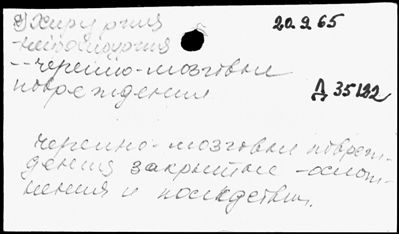 2) Хирургия 20.9.65
-нейрохирургия
--черепно-мозговые
повреждения Д 35132
черепно-мозговые повреж-
дения закрытые - ослож-
нения и последствия.